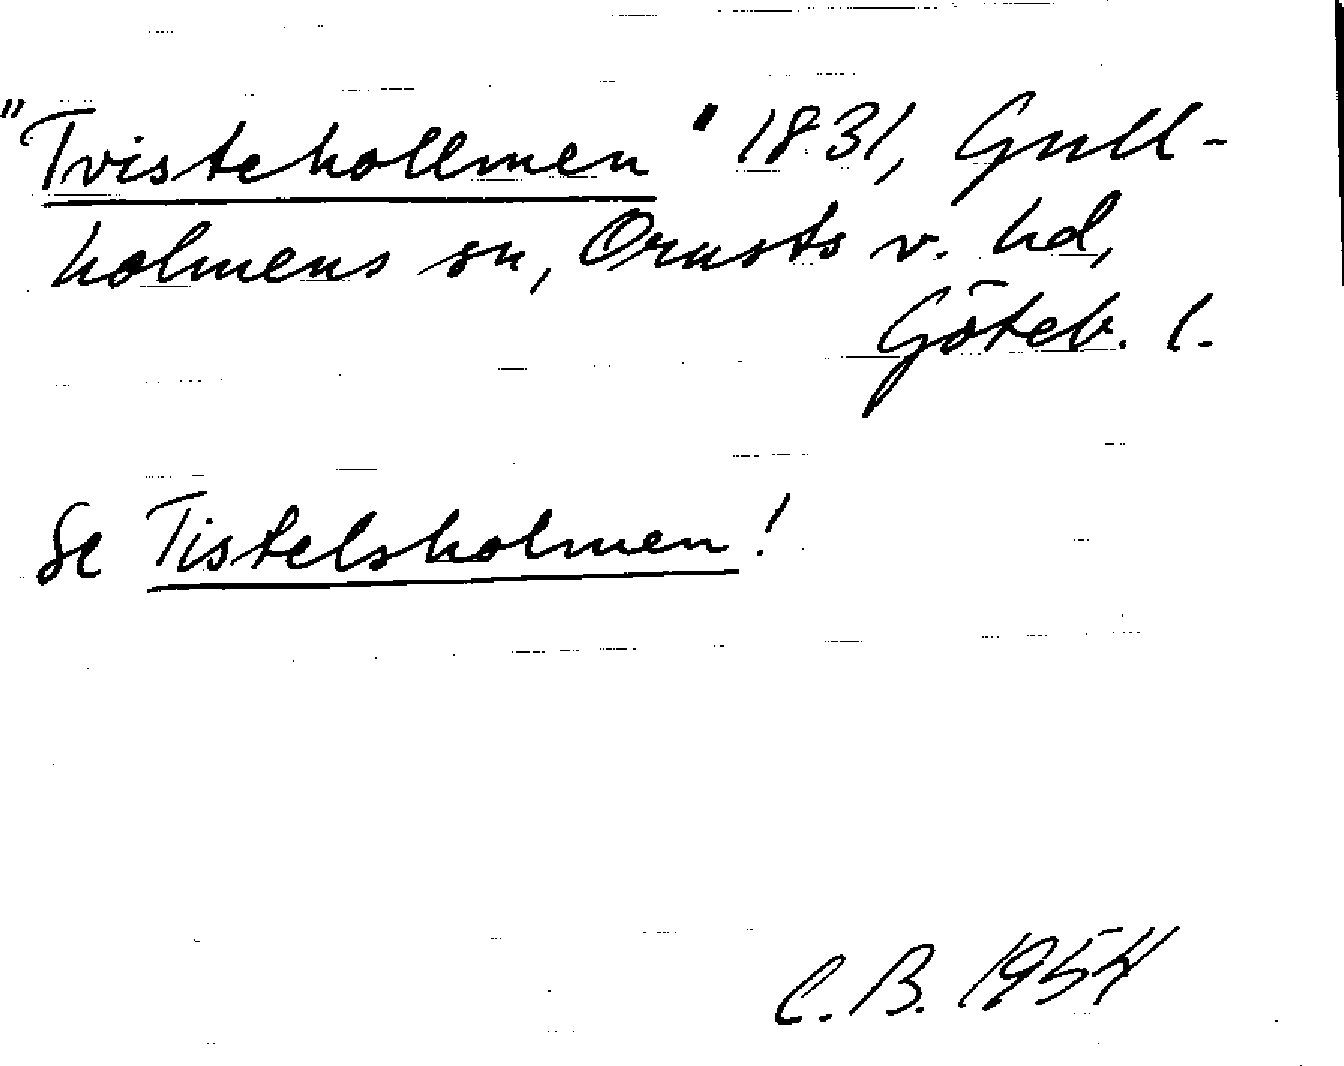 "Tvistehollmen" 1831, Gull-
holmens sn, Orusts v. hd,
Göteb. l.
Se Tistelsholmen!
C.B. 1954